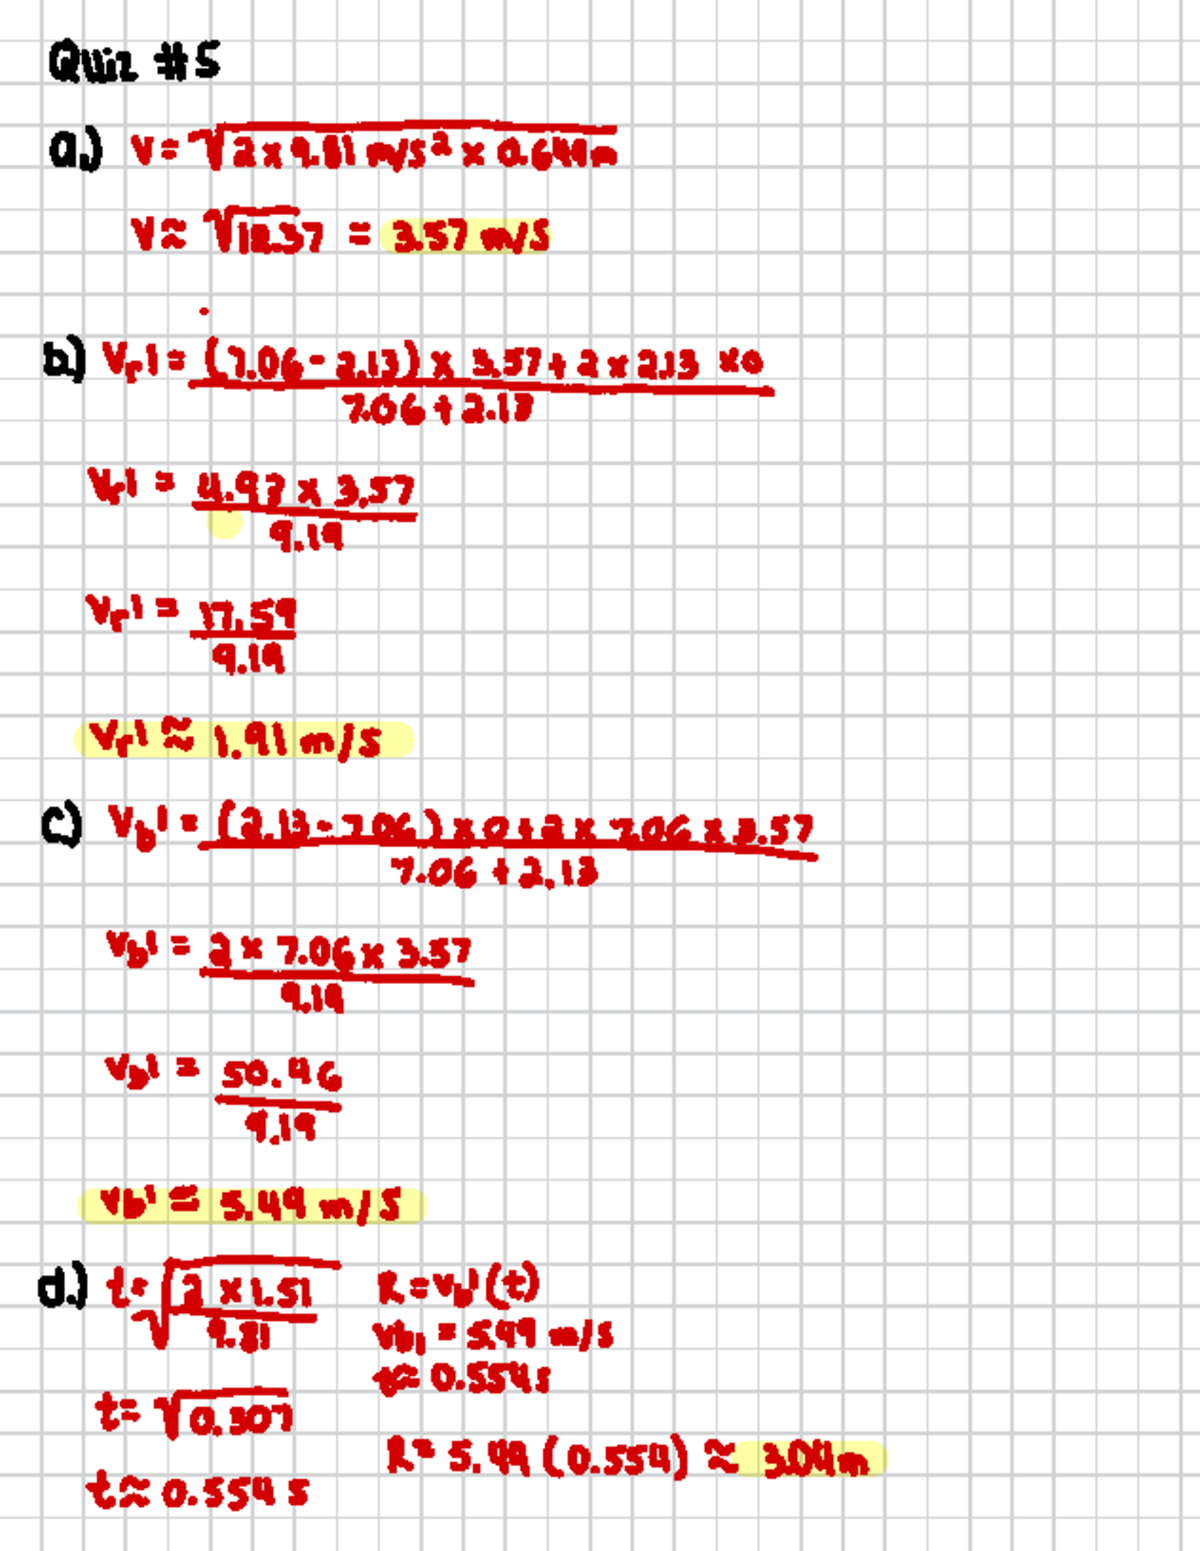 Quiz #5
a.) v = √2 x 9.81 m/s² x 0.649m
v ≈ √12.37 = 3.57 m/s
b.) Vr' = (7.06 - 2.13) x 3.57 + 2 x 2.13 x 0
7.06 + 2.13
Vr' = 4.93 x 3.57
9.19
Vr' = 17.59
9.19
Vr' ≈ 1.91 m/s
c.) Vb' = (2.13 - 7.06) x 0 + 2 x 7.06 x 3.57
7.06 + 2.13
Vb' = 2 x 7.06 x 3.57
9.19
Vb' = 50.46
9.19
Vb' ≈ 5.49 m/s
d.) t = √2 x 1.51
9.81
t = √0.307
t ≈ 0.554 s
R = Vb' (t)
Vb' = 5.49 m/s
t ≈ 0.554 s
R = 5.49 (0.554) ≈ 3.04m